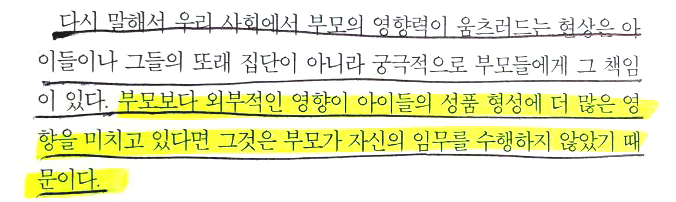 다시 말해서 우리 사회에서 부모의 영향력이 움츠러드는 현상은 아
이들이나 그들의 또래 집단이 아니라 궁극적으로 부모들에게 그 책임
이 있다. 부모보다 외부적인 영향이 아이들의 성품 형성에 더 많은 영
향을 미치고 있다면 그것은 부모가 자신의 임무를 수행하지 않았기 때
문이다.